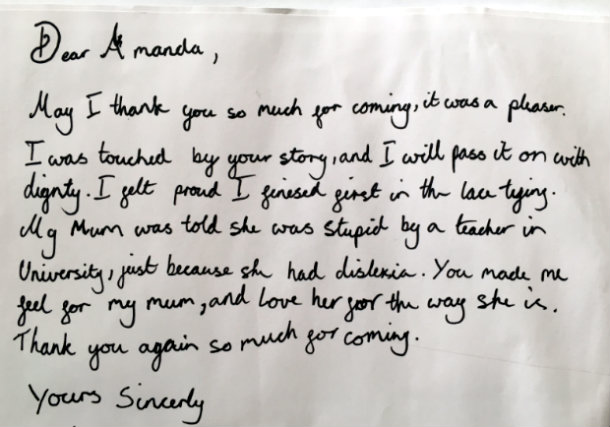 Dear Amanda,
May I thank you so much for coming, it was a pleaser.
I was touched by your story, and I will pass it on with
dignty. I felt proud I finesed first in the lace tying.
My Mum was told she was stupid by a teacher in
University, just because she had dislexia. You made me
feel for my mum, and love her for the way she is.
Thank you again so much for coming.
Yours Sincerly